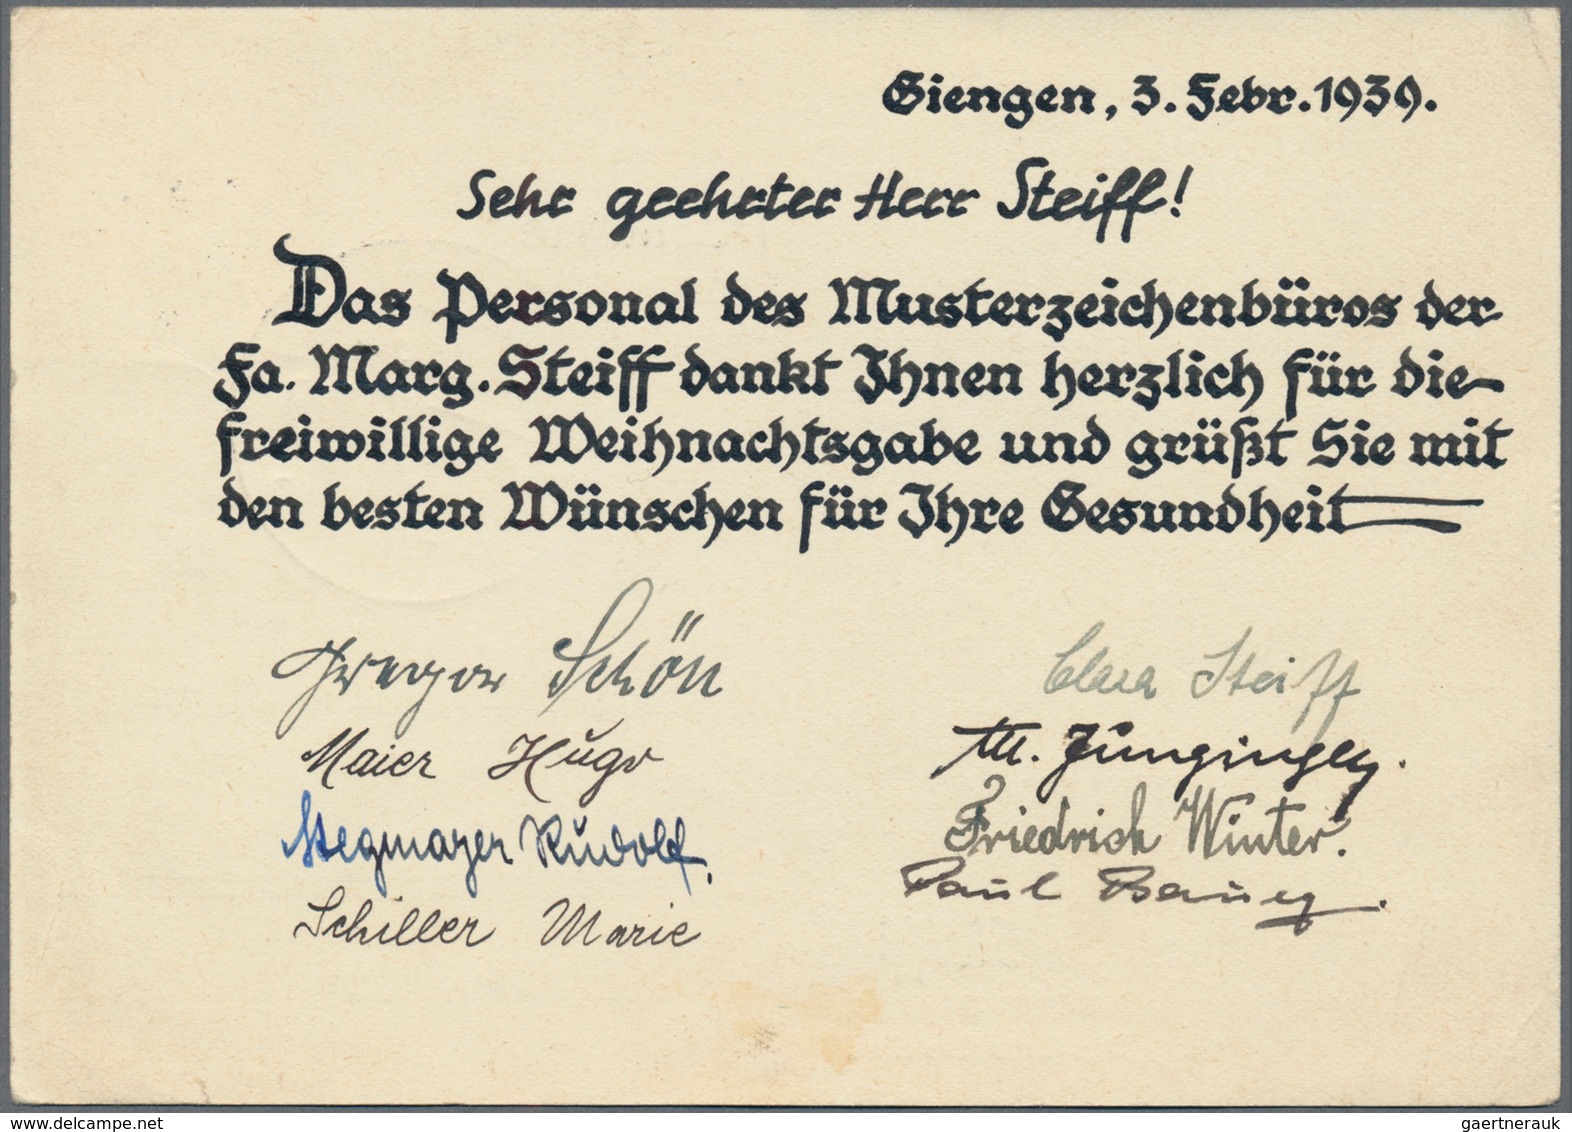 Giengen, 3. Febr. 1939.
Sehr geehrter Herr Steiff!
Das Personal des Musterzeichenbüros der
Fa. Marg. Steiff dankt Ihnen herzlich für die
freiwillige Weihnachtsgabe und grüßt Sie mit
den besten Wünschen für Ihre Gesundheit
Gregor Schön
Maier Hugo
Stegmayer Rudolf.
Schiller Marie
Clara Steiff
M. Junginger.
Friedrich Winter.
Paul
delcampe.net
gaertnerauk